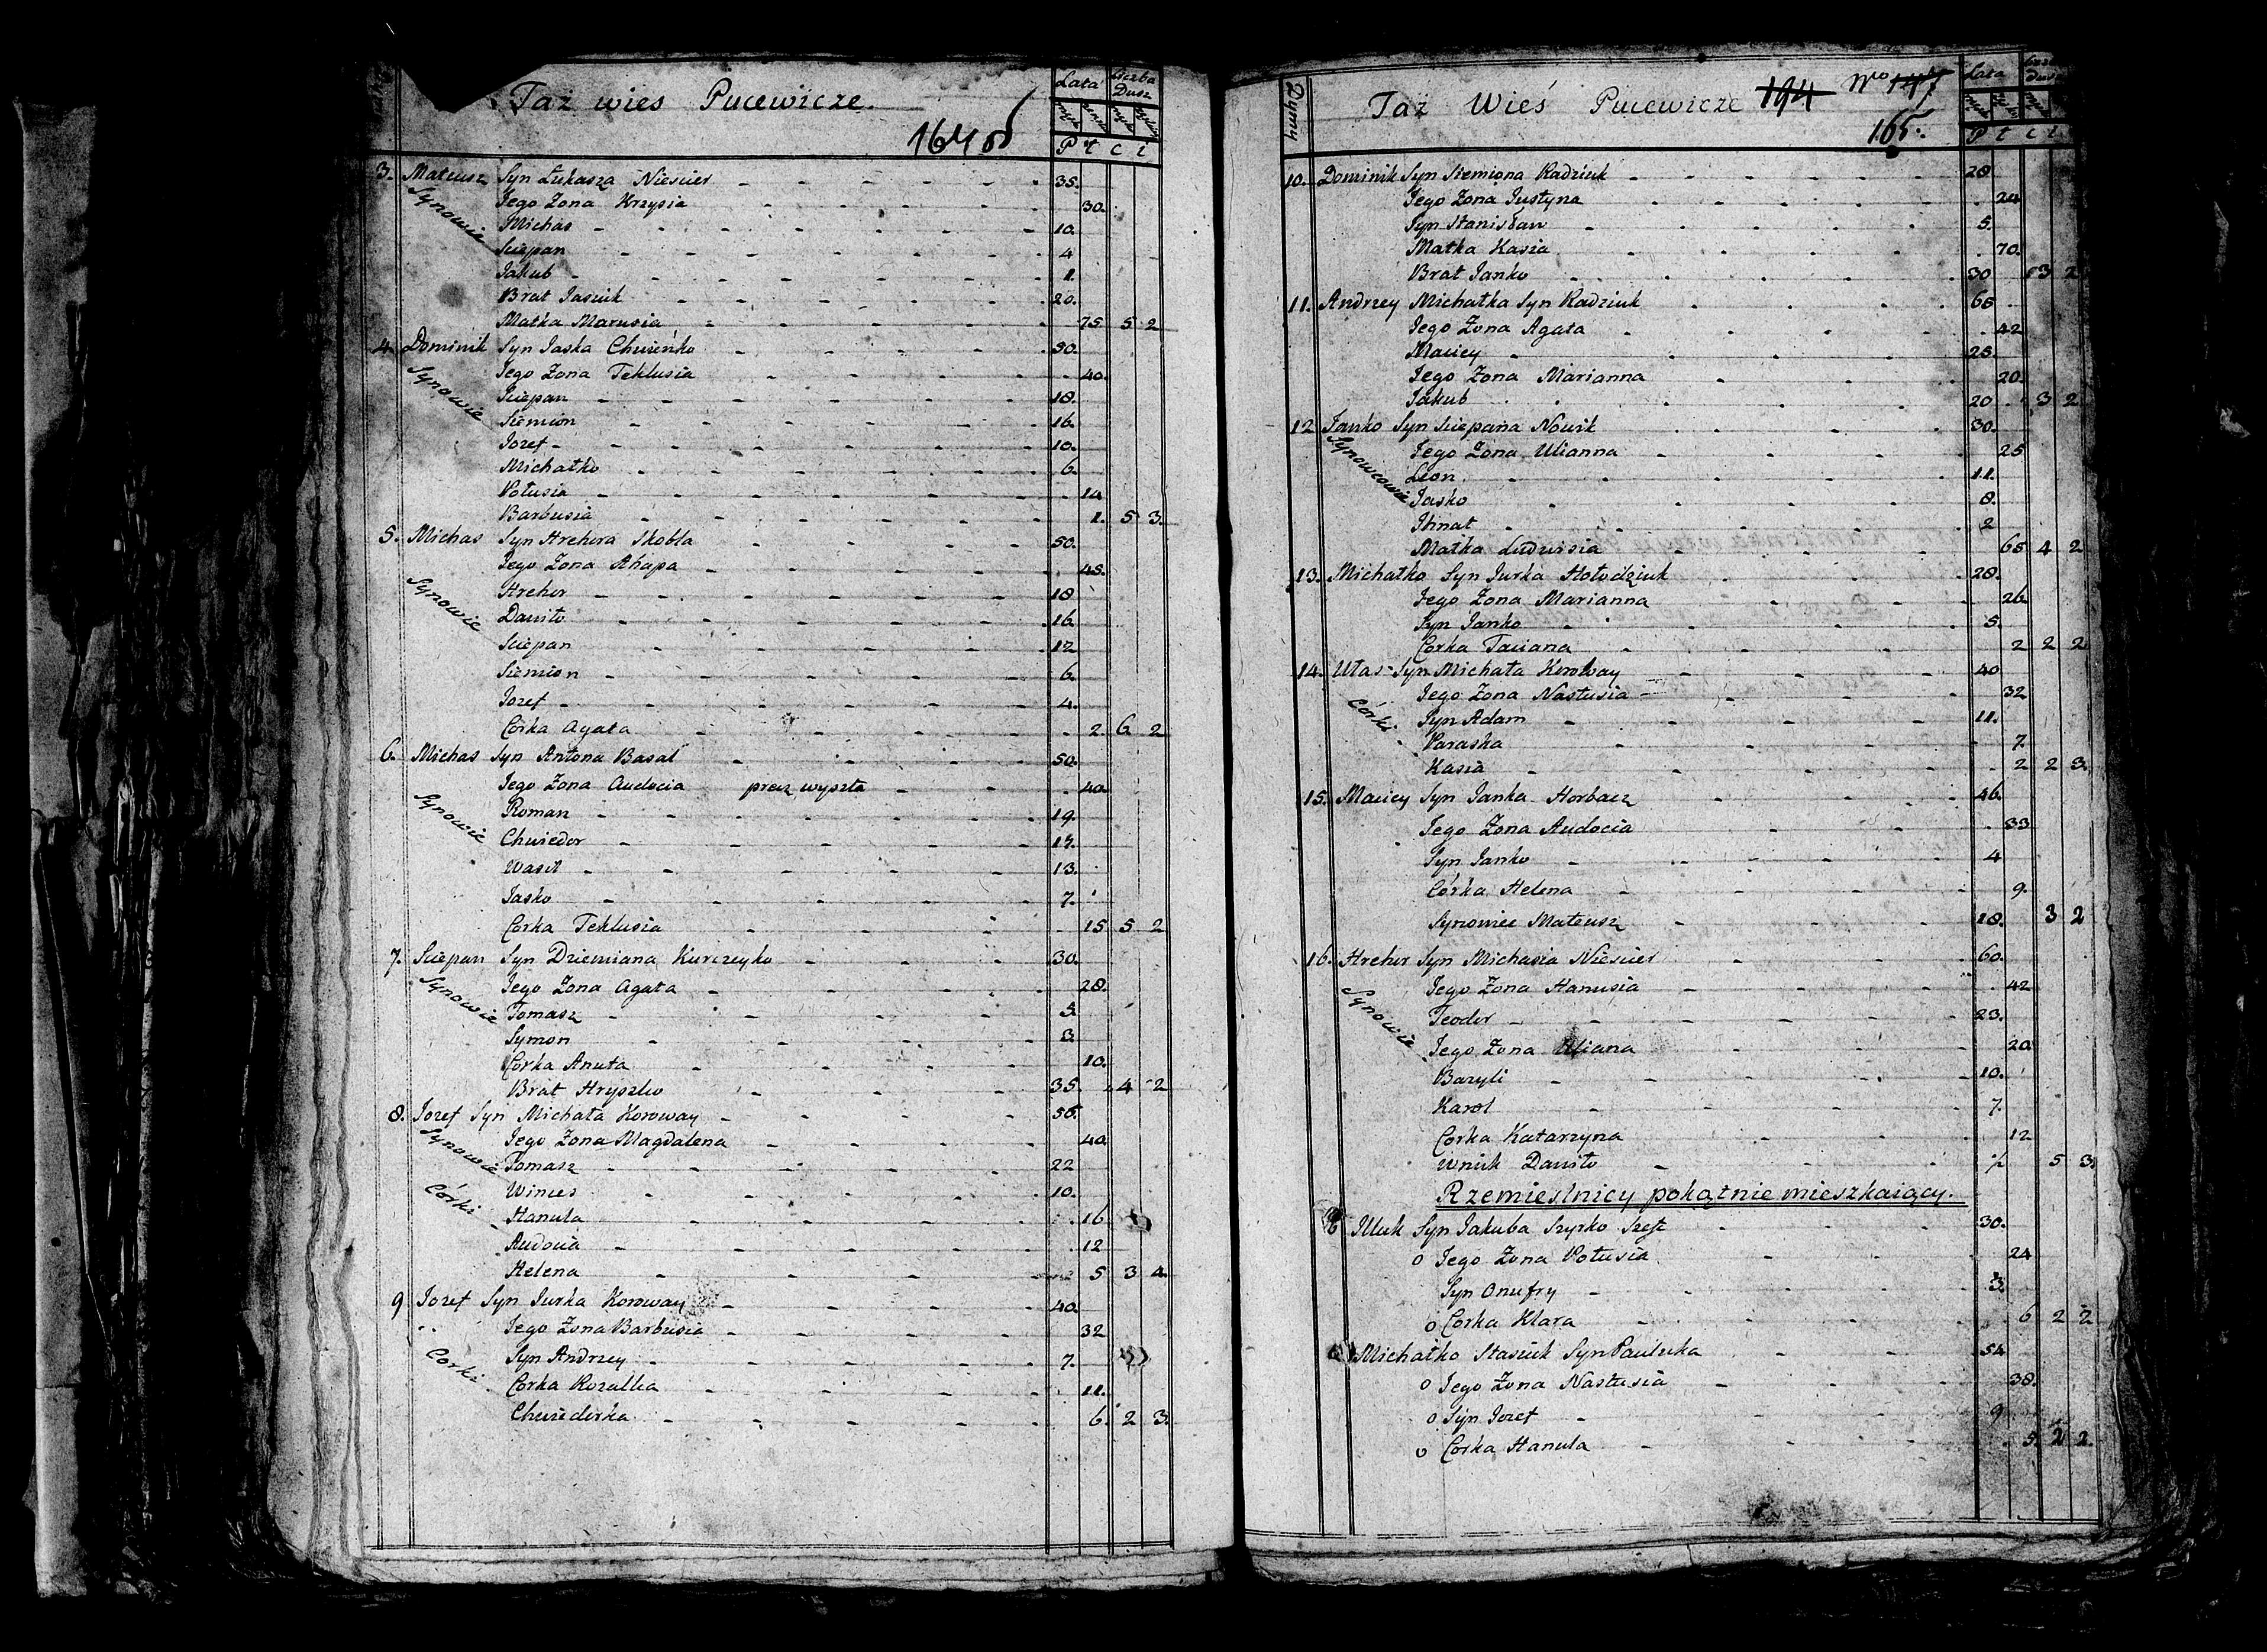 Taż wieś Pucewicze.
164
Lata Liczba Dusz
P t c i
3. Mateusz Syn Łukasza Niesciер 35.
Jego Zona Krzysia 30.
Synowie Michas 10.
Sciepan 4
Jakub 1.
Brat Jasiuk 20.
Matka Marusia 75 5 2
4. Dominik Syn Jaska Chwieńko 50.
Jego Zona Teklusia 40.
Synowie Sciepan 18.
Siemion 16.
Jozef 10.
Michałko 6.
Połusia 14
Barbusia 1. 5 3.
5. Michas Syn Hrehora Skobla 50.
Jego Zona Ahapa 45.
Synowie Hrehor 18
Daniło 16.
Sciepan 12
Siemion 6.
Jozef 4.
Córka Agata 2. 6 2
6. Michas Syn Antona Basal 50.
Jego Zona Audocia precz wyszła 40.
Synowie Roman 19.
Chwiedor 17.
Wasil 13.
Jasko 7.
Corka Teklusia 15 5 2
7. Sciepan Syn Dziemiana Kurczeyko 30.
Jego Zona Agata 28.
Synowie Tomasz 5.
Symon 3.
Corka Anuta 10.
Brat Hryszko 35. 4 2
8. Jozef Syn Michała Koroway 50.
Jego Zona Magdalena 40.
Synowie Tomasz 22
Winces 10.
Córki Hanula 16
Audocia 12
Helena 5 3 4.
9 Jozef Syn Jurka Koroway 40.
Jego Zona Barbusia 32
Syn Andrzey 7.
Corki Corka Rozalka 11.
Chwiedorka 6. 2 3.
Dymy Taż Wieś Pucewicze 194 Nro 147
165.
Lata
P t c i
10. Dominik Syn Siemiona Radziuk 28.
Jego Zona Justyna 24
Syn Stanisław 5.
Matka Kasia 70.
Brat Janko 30 3 2
11. Andrzey Michałka Syn Radziuk 66
Jego Zona Agata 42
Maciey 25.
Jego Zona Marianna 20.
Jakub 20 3 2
12 Janko Syn Sciepana Nowik 30.
Jego Zona Ulianna 25
Synowcowie Leon 11.
Jasko 8.
Ihnat 2
Matka Ludwisia 65 4 2
13. Michałko Syn Jurka Hołodziuk 28.
Jego Zona Marianna 26.
Syn Janko 5.
Corka Taciana 2 2 2
14. Ułas Syn Michała Koroway 40
Jego Zona Nastusia 32
Syn Adam 11.
Córki Paraska 7.
Kasia 2 2 3.
15. Maciey Syn Janka Horbacz 46.
Jego Zona Audocia 33
Syn Janko 4
Córka Helena 9.
Synowiec Mateusz 18. 3 2
16. Hrehor Syn Michasia Niescier 60.
Jego Zona Hanusia 42
Synowie Teodor 23.
Jego Zona Uliana 20
Bazyli 10.
Karol 7.
Corka Katarzyna 12
Wnuk Daniło 1/2 5 3.
Rzemieslnicy pokątnie mieszkaiący.
Iluk Syn Jakuba Szyrko Szeft 30.
o Jego Zona Połusia 24
Syn Onufry 3.
o Corka Klara 6 2 2
Michałko Stasiuk Syn Pauluka 54
o Jego Zona Nastusia 38.
o Syn Jozef 9
o Corka Hanula 5. 2 2.